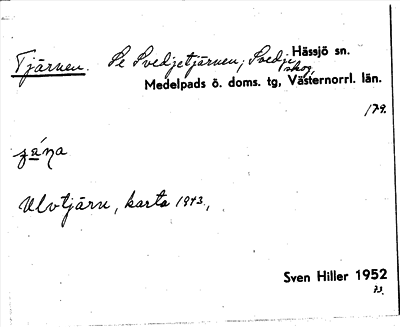 Tjärnen. Se Svedjetjärnen, Svedje Hässjö sn.
skog,
Medelpads ö. doms. tg, Västernorrl. län.
179.
Ulvtjärn, karta 1943,
Sven Hiller 1952